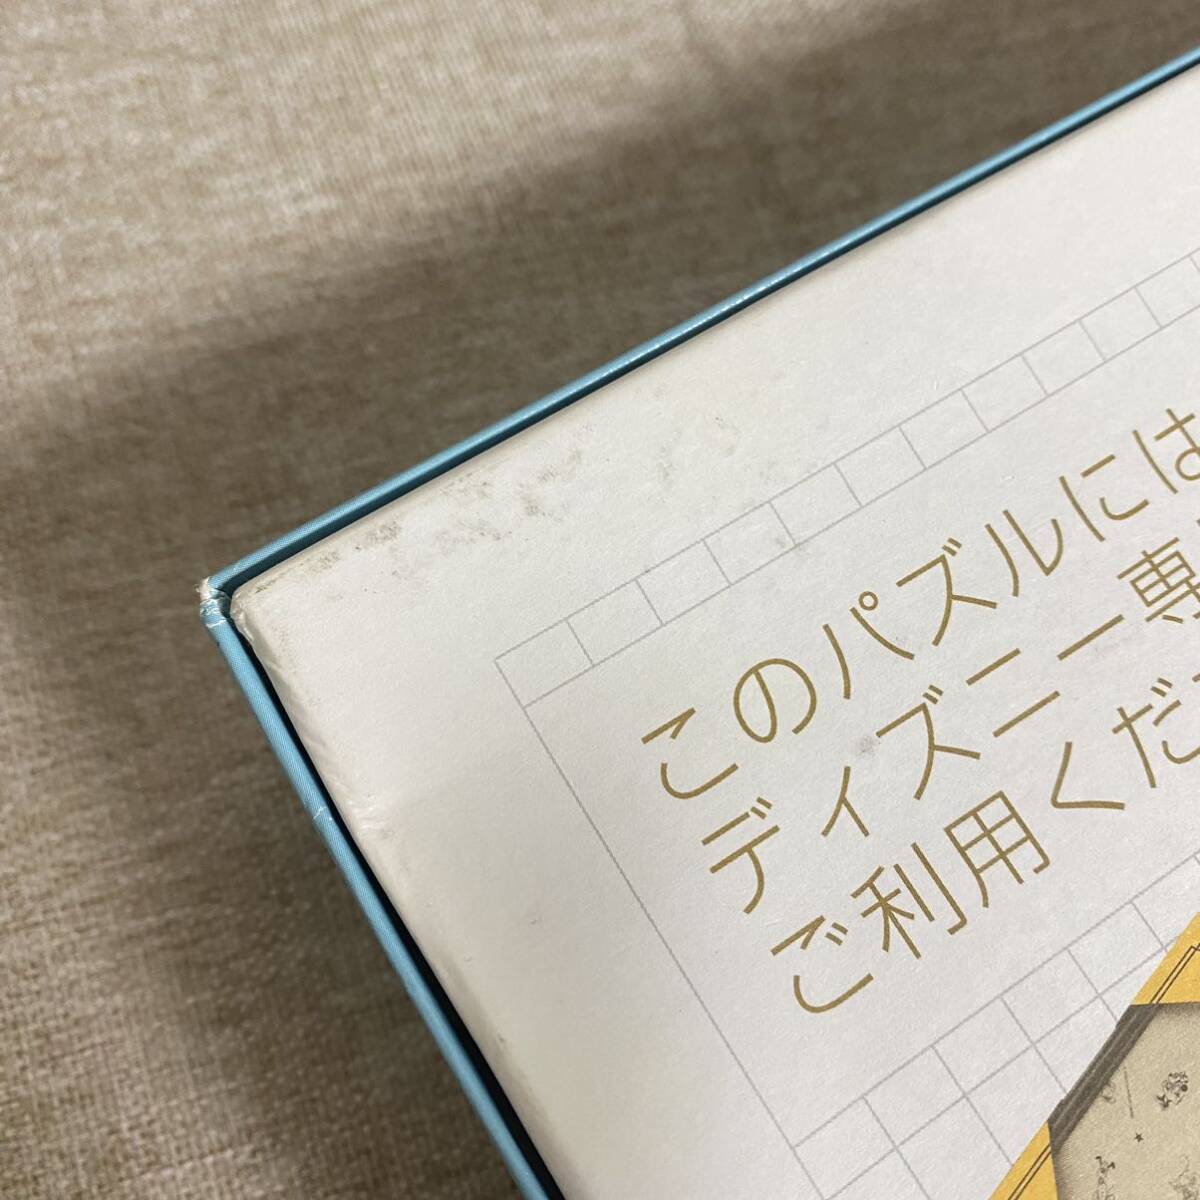 このパズルには
ディズニー専
ご利用くださ